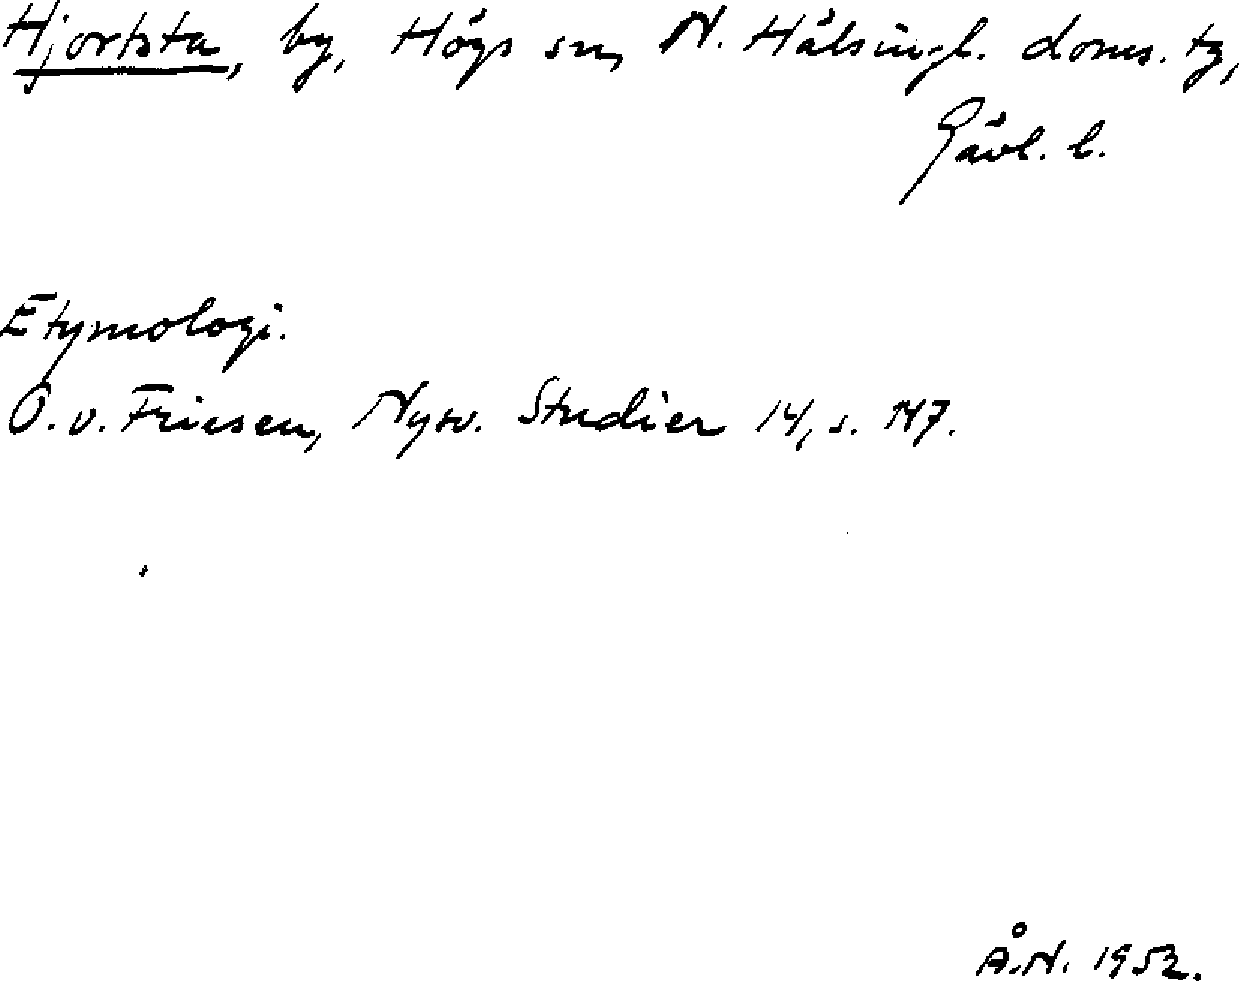 Hjortsta, by, Högs sn, N. Hälsingl. doms. tg,
Gävl. l.
Etymologi.
O. v. Friesen, Nysv. Studier 14, s. 147.
Å.N. 1952.